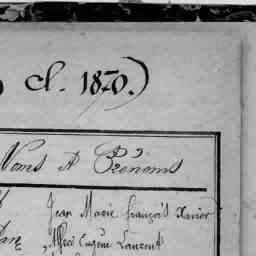 cl. 1870.)
Noms & Prénoms
Jean Marie françois Xavier
Alfred Eugène Laurent